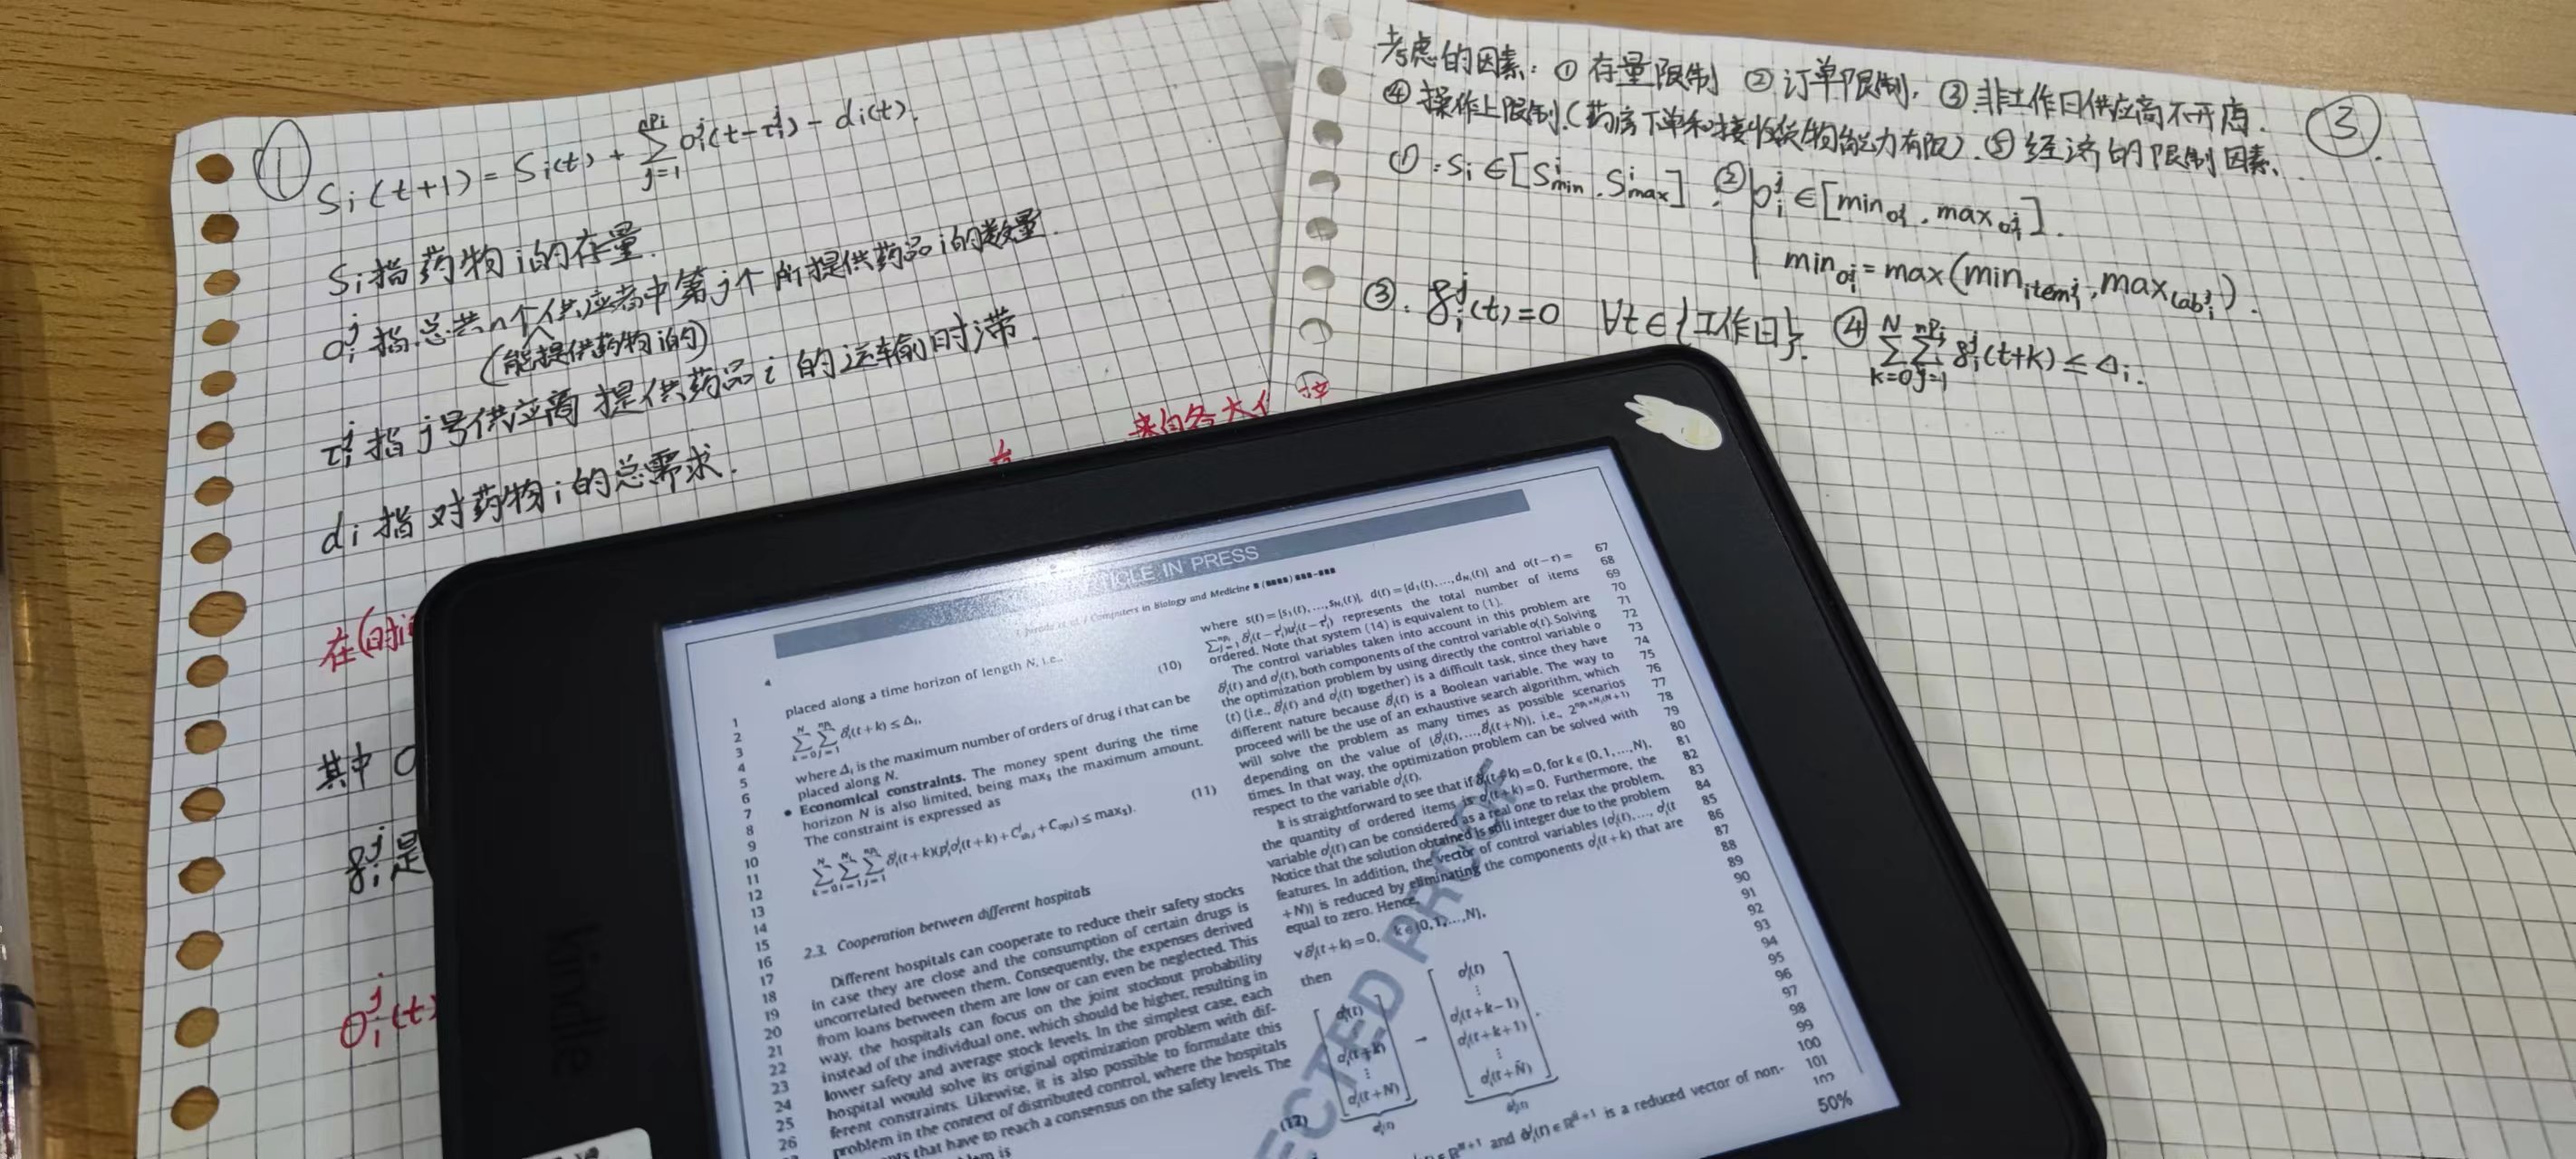 ①
Si(t+1) = Si(t) + ∑_{j=1}^{nPi} o_i^j(t-τ_i^j) - di(t).
Si指药物i的存量.
o_i^j指总共n个供应者中第j个所提供药品i的数量.
(能提供药物i的)
τ_i^j指j号供应商提供药品i的运输时滞.
di指对药物i的总需求.
来自各大
在(时间
其中
δ_i^j是
o_i^j(t)
考虑的因素: ①存量限制 ②订单限制. ③非工作日供应商不开店. ③.
④操作上限制.(药房下单和接收货物能力有限). ⑤经济的限制因素.
①: Si∈[S_min^i, S_max^i]. ② o_i^j∈[min_{o_i^j}, max_{o_i^j}].
min_{o_i^j} = max(min_{item_i^j}, max_{lab_i^j}).
③. δ_i^j(t)=0 ∀t∈{工作日}. ④ ∑_{k=0}^{N} ∑_{j=1}^{nPj} δ_i^j(t+k) ≤ Δi.
kindle
ARTICLE IN PRESS
Computers in Biology and Medicine
4
placed along a time horizon of length N, i.e.,
(10)
∑_{k=0}^{N} ∑_{j=1}^{np_i} δ_i^j(t+k) ≤ Δ_i,
where Δ_i is the maximum number of orders of drug i that can be
placed along N.
• Economical constraints. The money spent during the time
horizon N is also limited, being max_$ the maximum amount.
The constraint is expressed as
(11)
∑_{k=0}^{N} ∑_{i=1}^{N_i} ∑_{j=1}^{np_i} δ_i^j(t+k)(p_i^j o_i^j(t+k) + C_{sh,i}^j + C_{op,i}) ≤ max_$.
2.3. Cooperation between different hospitals
Different hospitals can cooperate to reduce their safety stocks
in case they are close and the consumption of certain drugs is
uncorrelated between them. Consequently, the expenses derived
from loans between them are low or can even be neglected. This
way, the hospitals can focus on the joint stockout probability
instead of the individual one, which should be higher, resulting in
lower safety and average stock levels. In the simplest case, each
hospital would solve its original optimization problem with dif-
ferent constraints. Likewise, it is also possible to formulate this
problem in the context of distributed control, where the hospitals
that have to reach a consensus on the safety levels. The
1
2
3
4
5
6
7
8
9
10
11
12
13
14
15
16
17
18
19
20
21
22
23
24
25
26
where s(t) = [s_1(t), …, s_{N_i}(t)], d(t) = [d_1(t), …, d_{N_i}(t)] and o(t-τ) =
∑_{j=1}^{np_i} δ_i^j(t-τ_i^j)o_i^j(t-τ_i^j) represents the total number of items
ordered. Note that system (14) is equivalent to (1).
The control variables taken into account in this problem are
δ_i^j(t) and o_i^j(t), both components of the control variable o(t). Solving
the optimization problem by using directly the control variable o
(t) (i.e., δ_i^j(t) and o_i^j(t) together) is a difficult task, since they have
different nature because δ_i^j(t) is a Boolean variable. The way to
proceed will be the use of an exhaustive search algorithm, which
will solve the problem as many times as possible scenarios
depending on the value of {δ_i^j(t), …, δ_i^j(t+N)}, i.e.,
times. In that way, the optimization problem can be solved with
respect to the variable o_i^j(t).
It is straightforward to see that if δ_i^j(t+k) = 0, for k ∈ {0, 1, …, N},
the quantity of ordered items is o_i^j(t+k) = 0. Furthermore, the
variable o_i^j(t) can be considered as a real one to relax the problem.
Notice that the solution obtained is still integer due to the problem
features. In addition, the vector of control variables {o_i^j(t), …, o_i^j(t
+N)} is reduced by eliminating the components o_i^j(t+k) that are
equal to zero. Hence,
∀ δ_i^j(t+k) = 0, k ∈ {0, 1, …, N},
then
o_i^j(t) o_i^j(t)
⋮
o_i^j(t+k-1)
o_i^j(t+k) → o_i^j(t+k+1)
⋮ ⋮
o_i^j(t+N) o_i^j(t+N̄)
(12)
is a reduced vector of non-
67
68
69
70
71
72
73
74
75
76
77
78
79
80
81
82
83
84
85
86
87
88
89
90
91
92
93
94
95
96
97
98
99
100
101
102
50%
ECTED PROOF